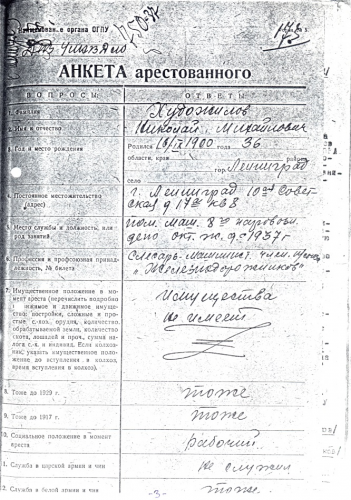 органа ОГПУ
АНКЕТА арестованного
ВОПРОСЫ
ОТВЕТЫ
1. Фамилия
Художилов
2. Имя и отчество
Николай Михайлович
3. Год и место рождения
Родился 10/II 1900 года 36
области, края район
гор. Ленинград
село
4. Постоянное местожительство (адрес)
г. Ленинград 10ая Совет-
ская д 17 кв 8
5. Место службы и должность, или род занятий
пом. маш. 8го паровозн.
депо окт. ж. д. - 1937 г
6. Профессия и профсоюзная принадлежность, № билета
Слесарь-машинист член
"Железнодорожников"
7. Имущественное положение в момент ареста (перечислить подробно
недвижимое и движимое имущество: постройки, сложные и простые
с.-хоз. орудия, количество
обрабатываемой земли, количество
скота, лошадей и проч., сумма налога
с.-х. и индивид. Если колхозник,
указать имущественное положение
до вступления в колхоз,
время вступления в колхоз).
имущества
не имеет
8. Тоже до 1929 г.
тоже
9. Тоже до 1917 г.
тоже
10. Социальное положение в момент ареста
рабочий
1. Служба в царской армии и чин
не служил
2. Служба в белой армии и чин
тоже
-3-